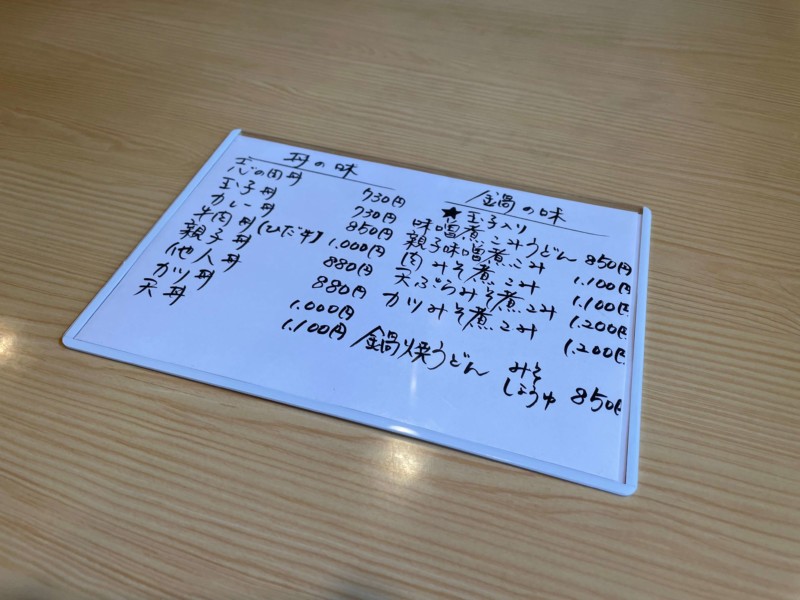 丼の味
730円
玉子丼 730円
カレー丼 850円
牛肉丼(ひだ牛) 1.000円
親子丼 880円
他人丼 880円
カツ丼 1.000円
天丼 1.100円
鍋の味
★玉子入り
味噌煮こみうどん 850円
親子味噌煮こみ 1.100円
肉みそ煮こみ 1.100円
天ぷらみそ煮こみ 1.200円
カツみそ煮こみ 1.200円
鍋焼うどん みそ
しょうゆ 850円